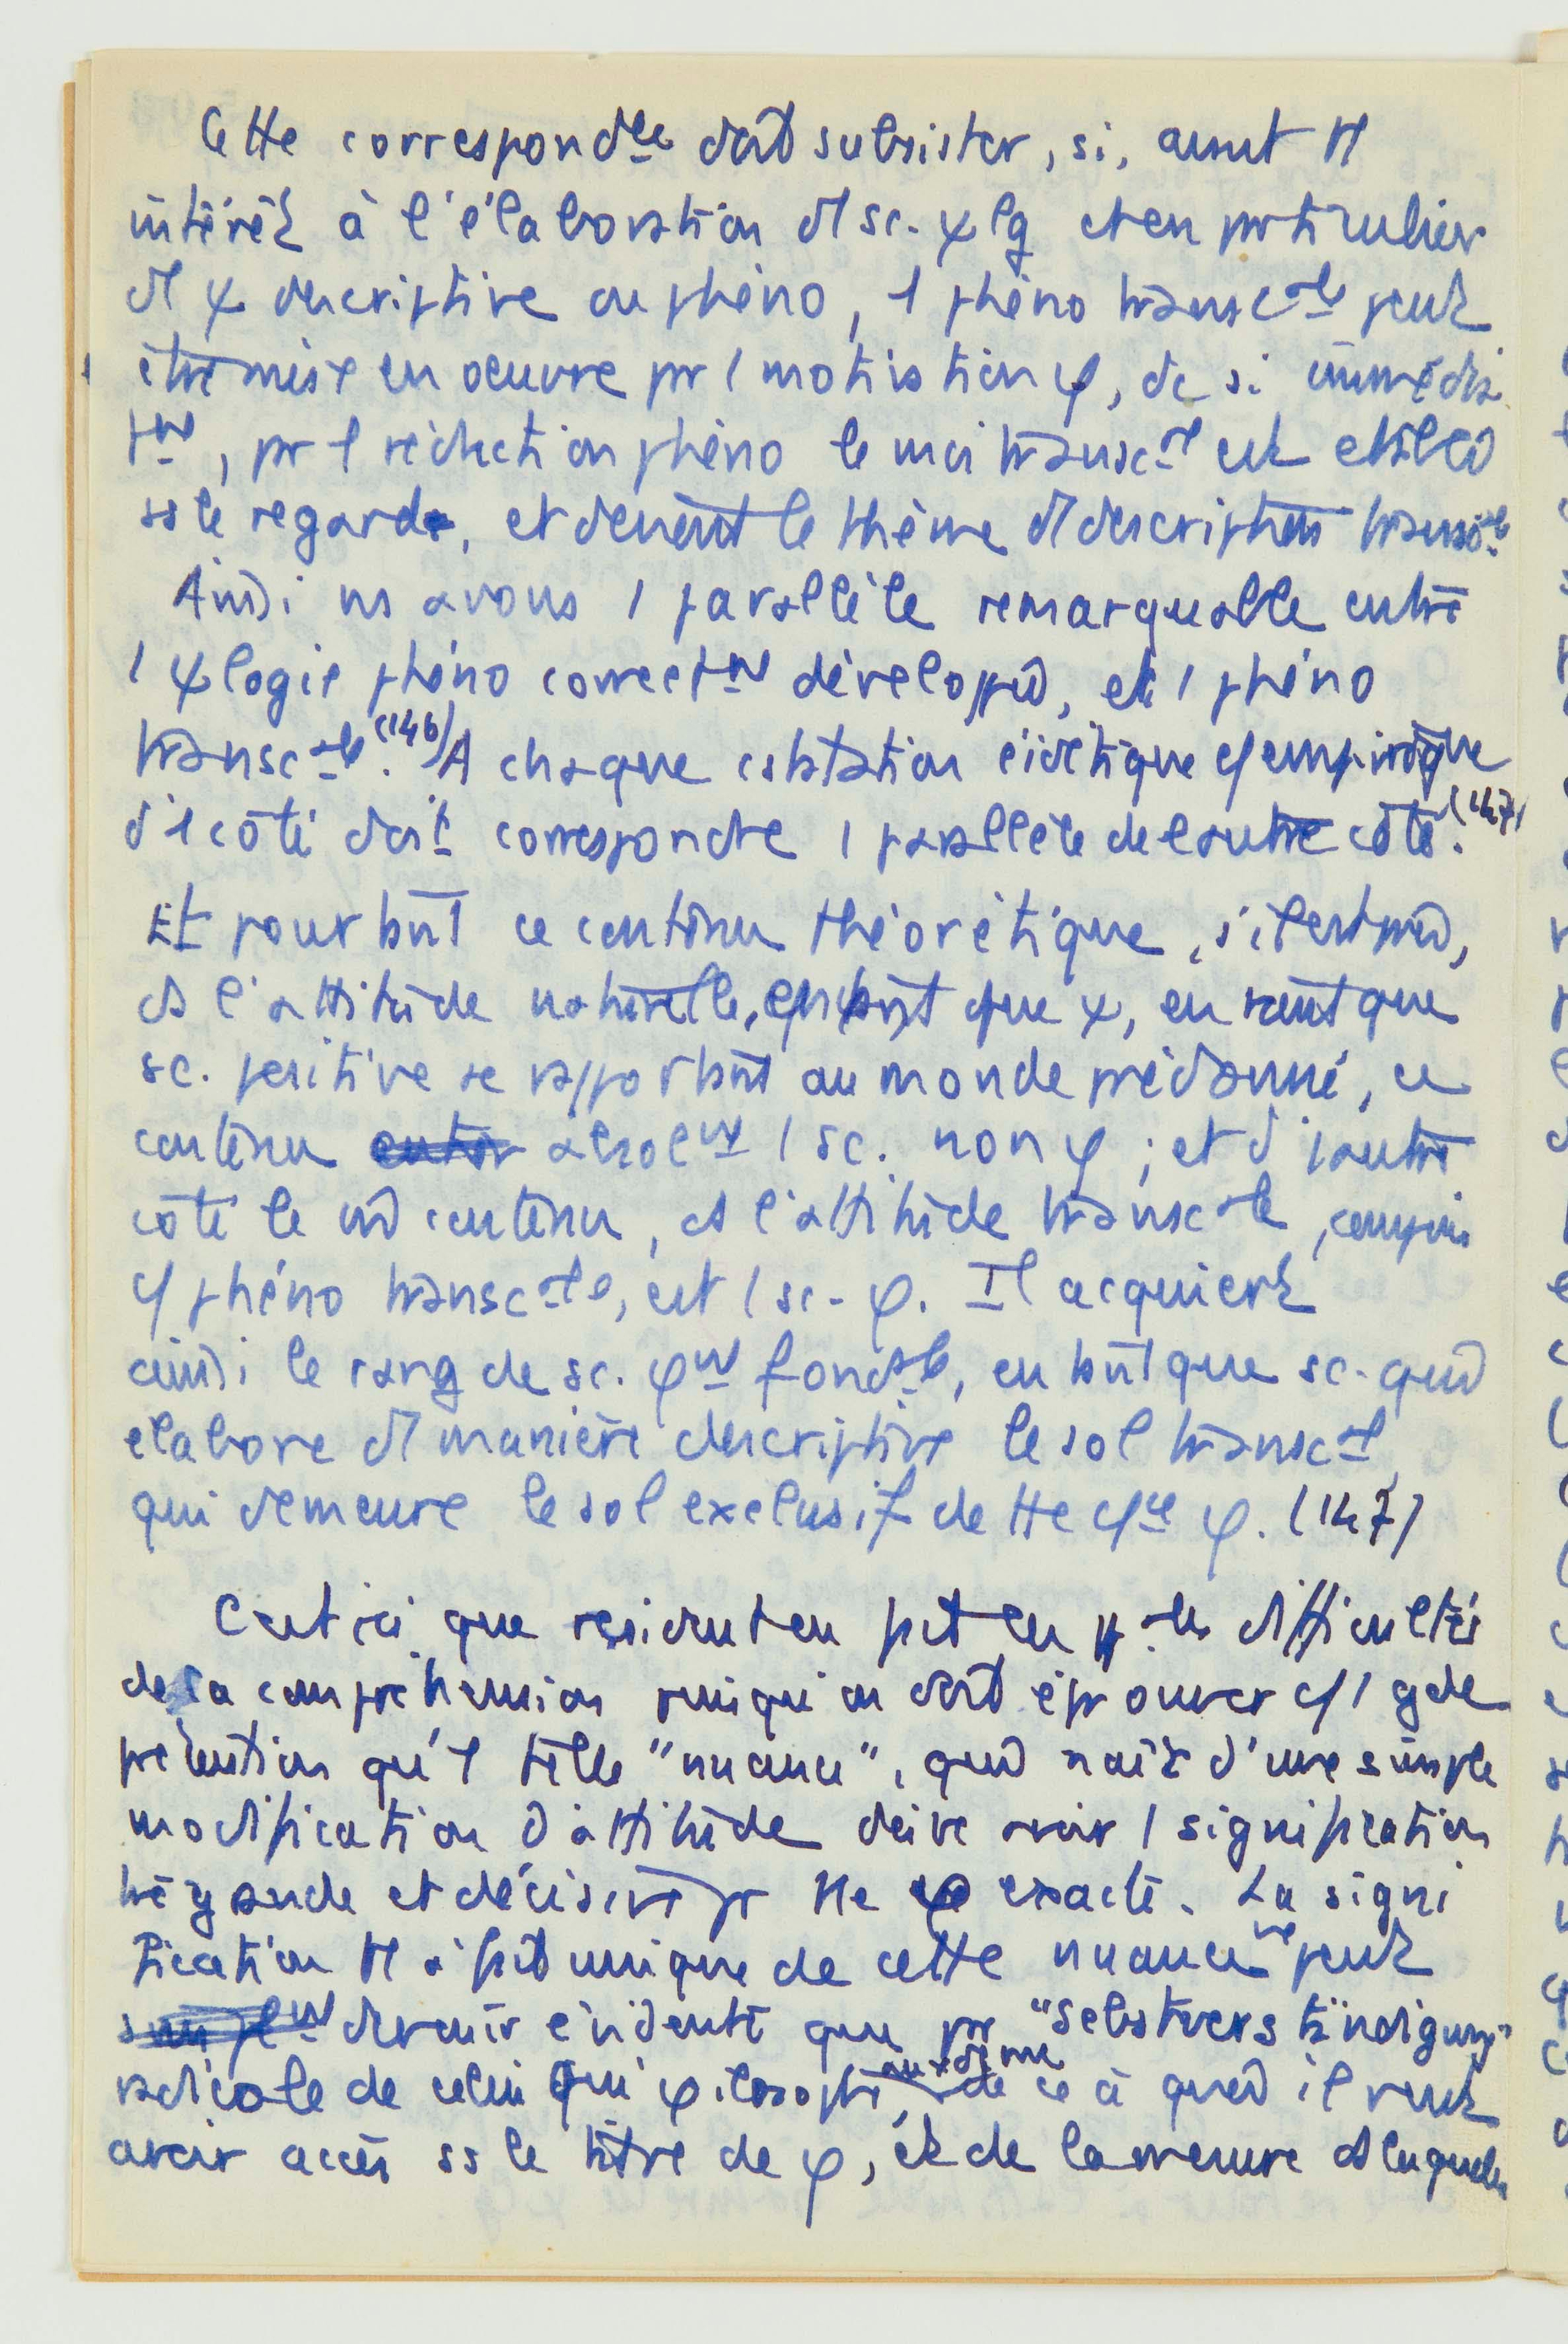 Cette correspond^ce doit subsister, si, avant tt
intérêt à l'élaboration d'1 sc. ψlg et en particulier
d'1 ψ descriptive ou phéno, 1 phéno transc^ale peut
être mise en oeuvre pr 1 motivation φ, dc si immédia
t^nt, pr 1 réduction phéno le moi transc^al est établi
ss le regard, et devient le thème d'1 description transc^ale
Ainsi ns avons 1 parallèle remarquable entre
1 ψlogie phéno correct^nt développée, et 1 phéno
transc^ale. (146) A chaque constatation eidétique c/ empirique
d'1 côté doit correspondre 1 parallèle de l'autre côté. (147)
Et pourtant ce contenu théorétique, s'il est pris,
ds l'attitude naturelle, en tant que ψ, en tant que
sc. positive se rapportant au monde prédonné, ce
contenu absol^nt 1 sc. non φ ; et d'1 autre
côté le m̂ contenu, ds l'attitude transc^ale, compris
c/ phéno transc^ale, est 1 sc. φ. Il acquiert
ainsi le rang de sc. φ^nt fond^ale, en tant que sc. qui
élabore d'1 manière descriptive le sol transc^al
qui demeure le sol exclusif de tte c/^ce φ. (147)
C'est ici que résident en fait les difficultés
de sa compréhension puisqu'on doit éprouver c/ 1 gde
prétention qu'1 telle "nuance", qui naît d'une simple
modification d'attitude doive avoir 1 signification
très grande et décisive pr tte φ exacte. La signi
fication tt à fait unique de cette nuance ne peut
devenir évidente que pr "Selbstverständigung"
radicale de celui qui φilosophe de ce à quoi il veut
avoir accès ss le titre de φ, et de la mesure ds laquelle